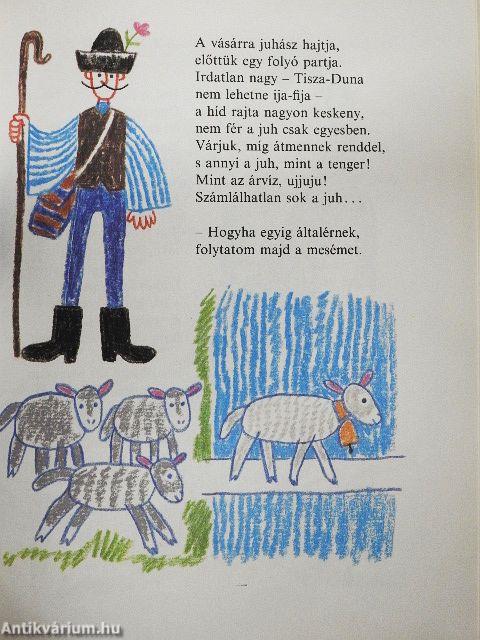 A vásárra juhász hajtja,
előttük egy folyó partja.
Irdatlan nagy – Tisza-Duna
nem lehetne ija-fija –
a híd rajta nagyon keskeny,
nem fér a juh csak egyesben.
Várjuk, míg átmennek renddel,
s annyi a juh, mint a tenger!
Mint az árvíz, ujjuju!
Számlálhatlan sok a juh...
– Hogyha egyig általérnek,
folytatom majd a mesémet.
Antikvárium.hu